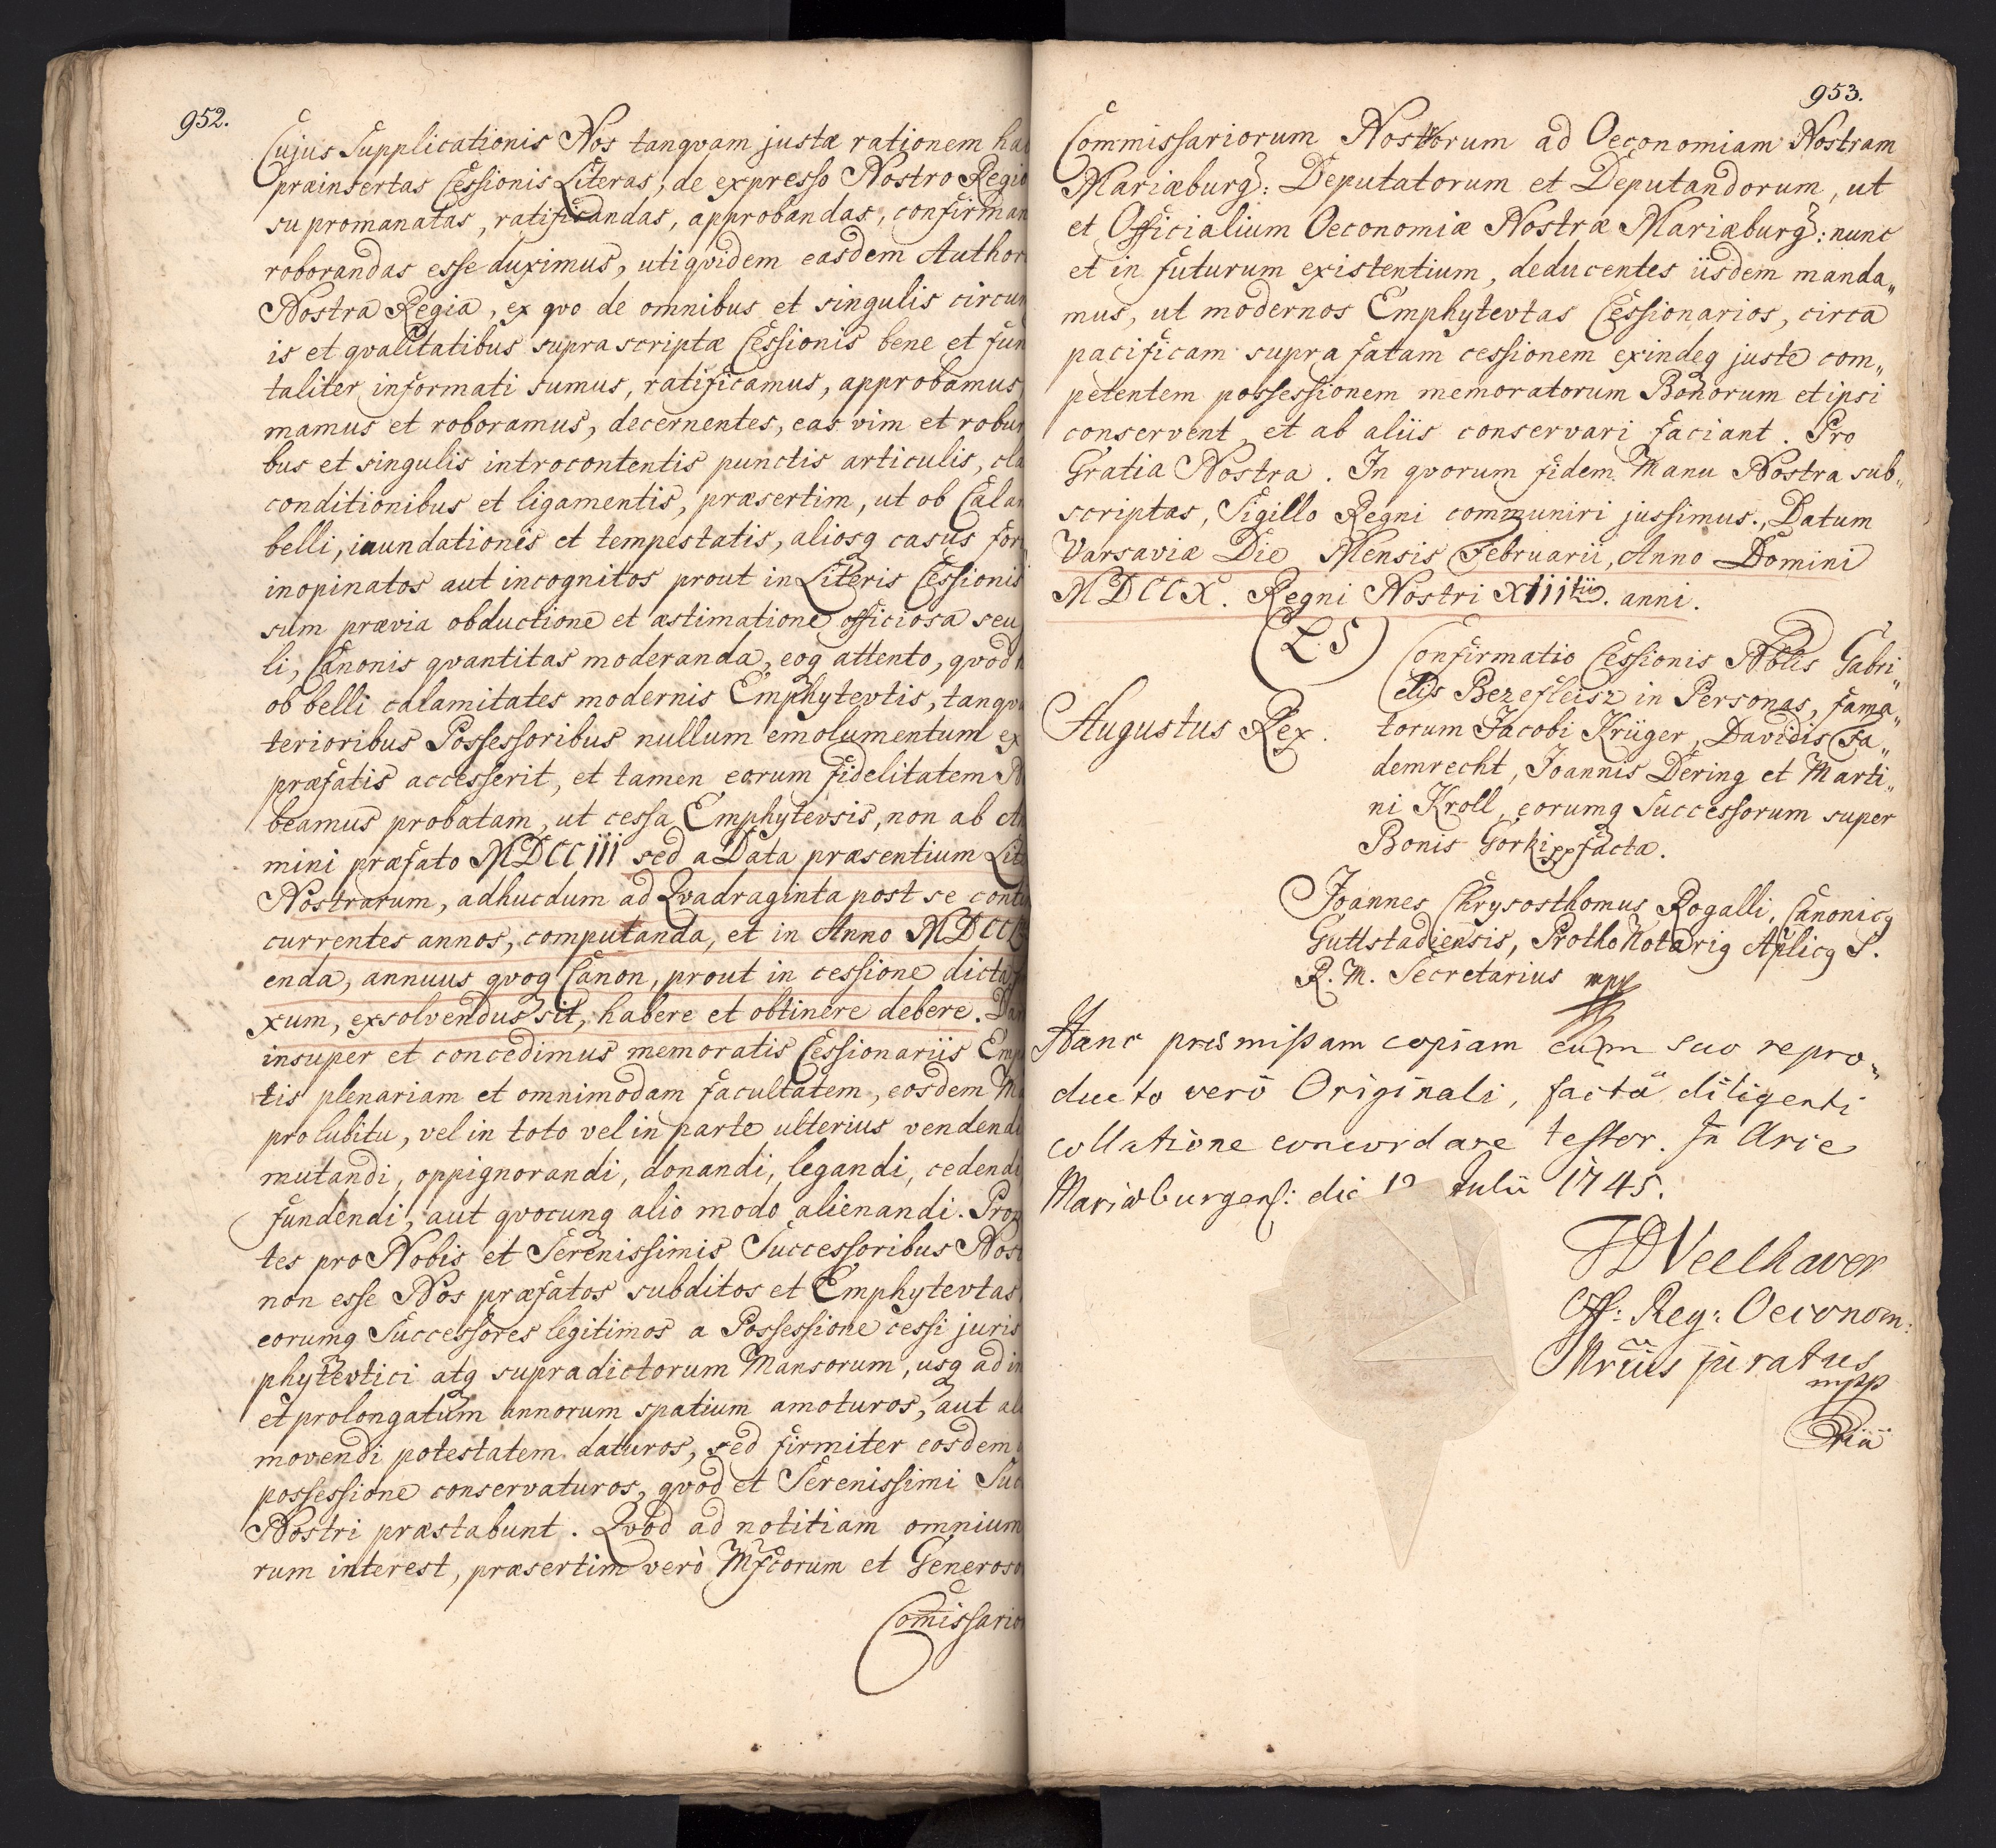 952.
Cujus Supplicationis Nos tanqvam justæ rationem ha
præinsertas Cessionis Literas, de expresso Nostro Regio
su promanatas, ratificandas, approbandas, confirman
roborandas esse duximus, utiqvidem easdem Author
Nostra Regia, ex qvo de omnibus et singulis circum
is et qvalitatibus suprascriptæ Cessionis bene et fun
taliter informati sumus, ratificamus, approbamus,
mamus et roboramus, decernentes, eas vim et robur
bus et singulis introcontentis punctis articulis, cla
conditionibus et ligamentis, præsertim, ut ob Calam
belli, inundationis et tempestatis, aliosq casus for
inopinatos aut incognitos prout in Literis Cessionis
sum prævia obductione et æstimatione officiosa seu
li, Canonis qvantitas moderanda, eoq attento, qvod
ob belli calamitates modernis Emphytevtis, tanqva
terioribus Possessoribus nullum emolumentum ex
præfatis accesserit, et tamen eorum fidelitatem
beamus probatam, ut cessa Emphytevsis, non ab An
mini præfato MDCCIII sed a Data præsentium Lit
Nostrarum, adhucdum ad Qvadraginta post se conti
currentes annos, computanda, et in Anno MDCCL
enda, annuus qvoq Canon, prout in cessione dicta
xum, exsolvendus sit, habere et obtinere debere. Dan
insuper et concedimus memoratis Cessionariis Emp
tis plenariam et omnimodam facultatem, eosdem Ma
pro lubitu, vel in toto vel in parte ulterius vendendi
mutandi, oppignorandi, donandi, legandi, cedendi
fundendi, aut qvocunq alio modo alienandi. Prom
tes pro Nobis et Serenissimis Successoribus Nost
non esse Nos præfatos subditos et Emphytevtas
eorumq Successores legitimos a Possessione cessi juris
phytevtici atq supradictorum Mansorum, usq ad in
et prolongatum annorum spatium amoturos, aut ali
movendi potestatem daturos, sed firmiter eosdem
possessione conservaturos, qvod et Serenissimi Suc
Nostri præstabunt. Qvod ad notitiam omnium
rum interest, præsertim verò Mfcorum et Generoso
Comissario
953.
Commissariorum Nostrorum ad Oeconomiam Nostram
Mariæburg: Deputatorum et Deputandorum, ut
et Officialium Oeconomiæ Nostræ Mariæburg: nunc
et in futurum existentium, deducentes iisdem manda„
mus, ut modernos Emphytevtas Cessionarios, circa
pacificam supra fatam cessionem exindeq juste com„
petentem possessionem memoratorum Bonorum et ipsi
conservent, et ab aliis conservari faciant. Pro
Gratia Nostra. In qvorum fidem Manu Nostra sub„
scriptas, Sigillo Regni communiri jussimus., Datum
Varsaviæ Die Mensis Februarii, Anno Domini
MDCCX. Regni Nostri XIIItii. anni.
(L.S)
Confirmatio Cessionis Nblis Gabri„
elis Bezefleisz in Personas, fama„
Augustus Rex. torum Jacobi Krüger, Davidis Fa„
demrecht, Joannis Dering et Marti„
ni Kroll, eorumq Successorum super
Bonis Gorki pp facta.
Joannes Chrysosthomus Rogalli, Canonicq
Guttstadiensis, ProthoNotariq Aplicq S.
R. M. Secretarius mpp
Hanc præmissam copiam cum suo repro„
ducto verò Originali, factâ diligenti
collatione concordare testor. In Arce
Mariæburgens: die Julii 1745.
Off: Reg: Oeconom:
juratus
mpp